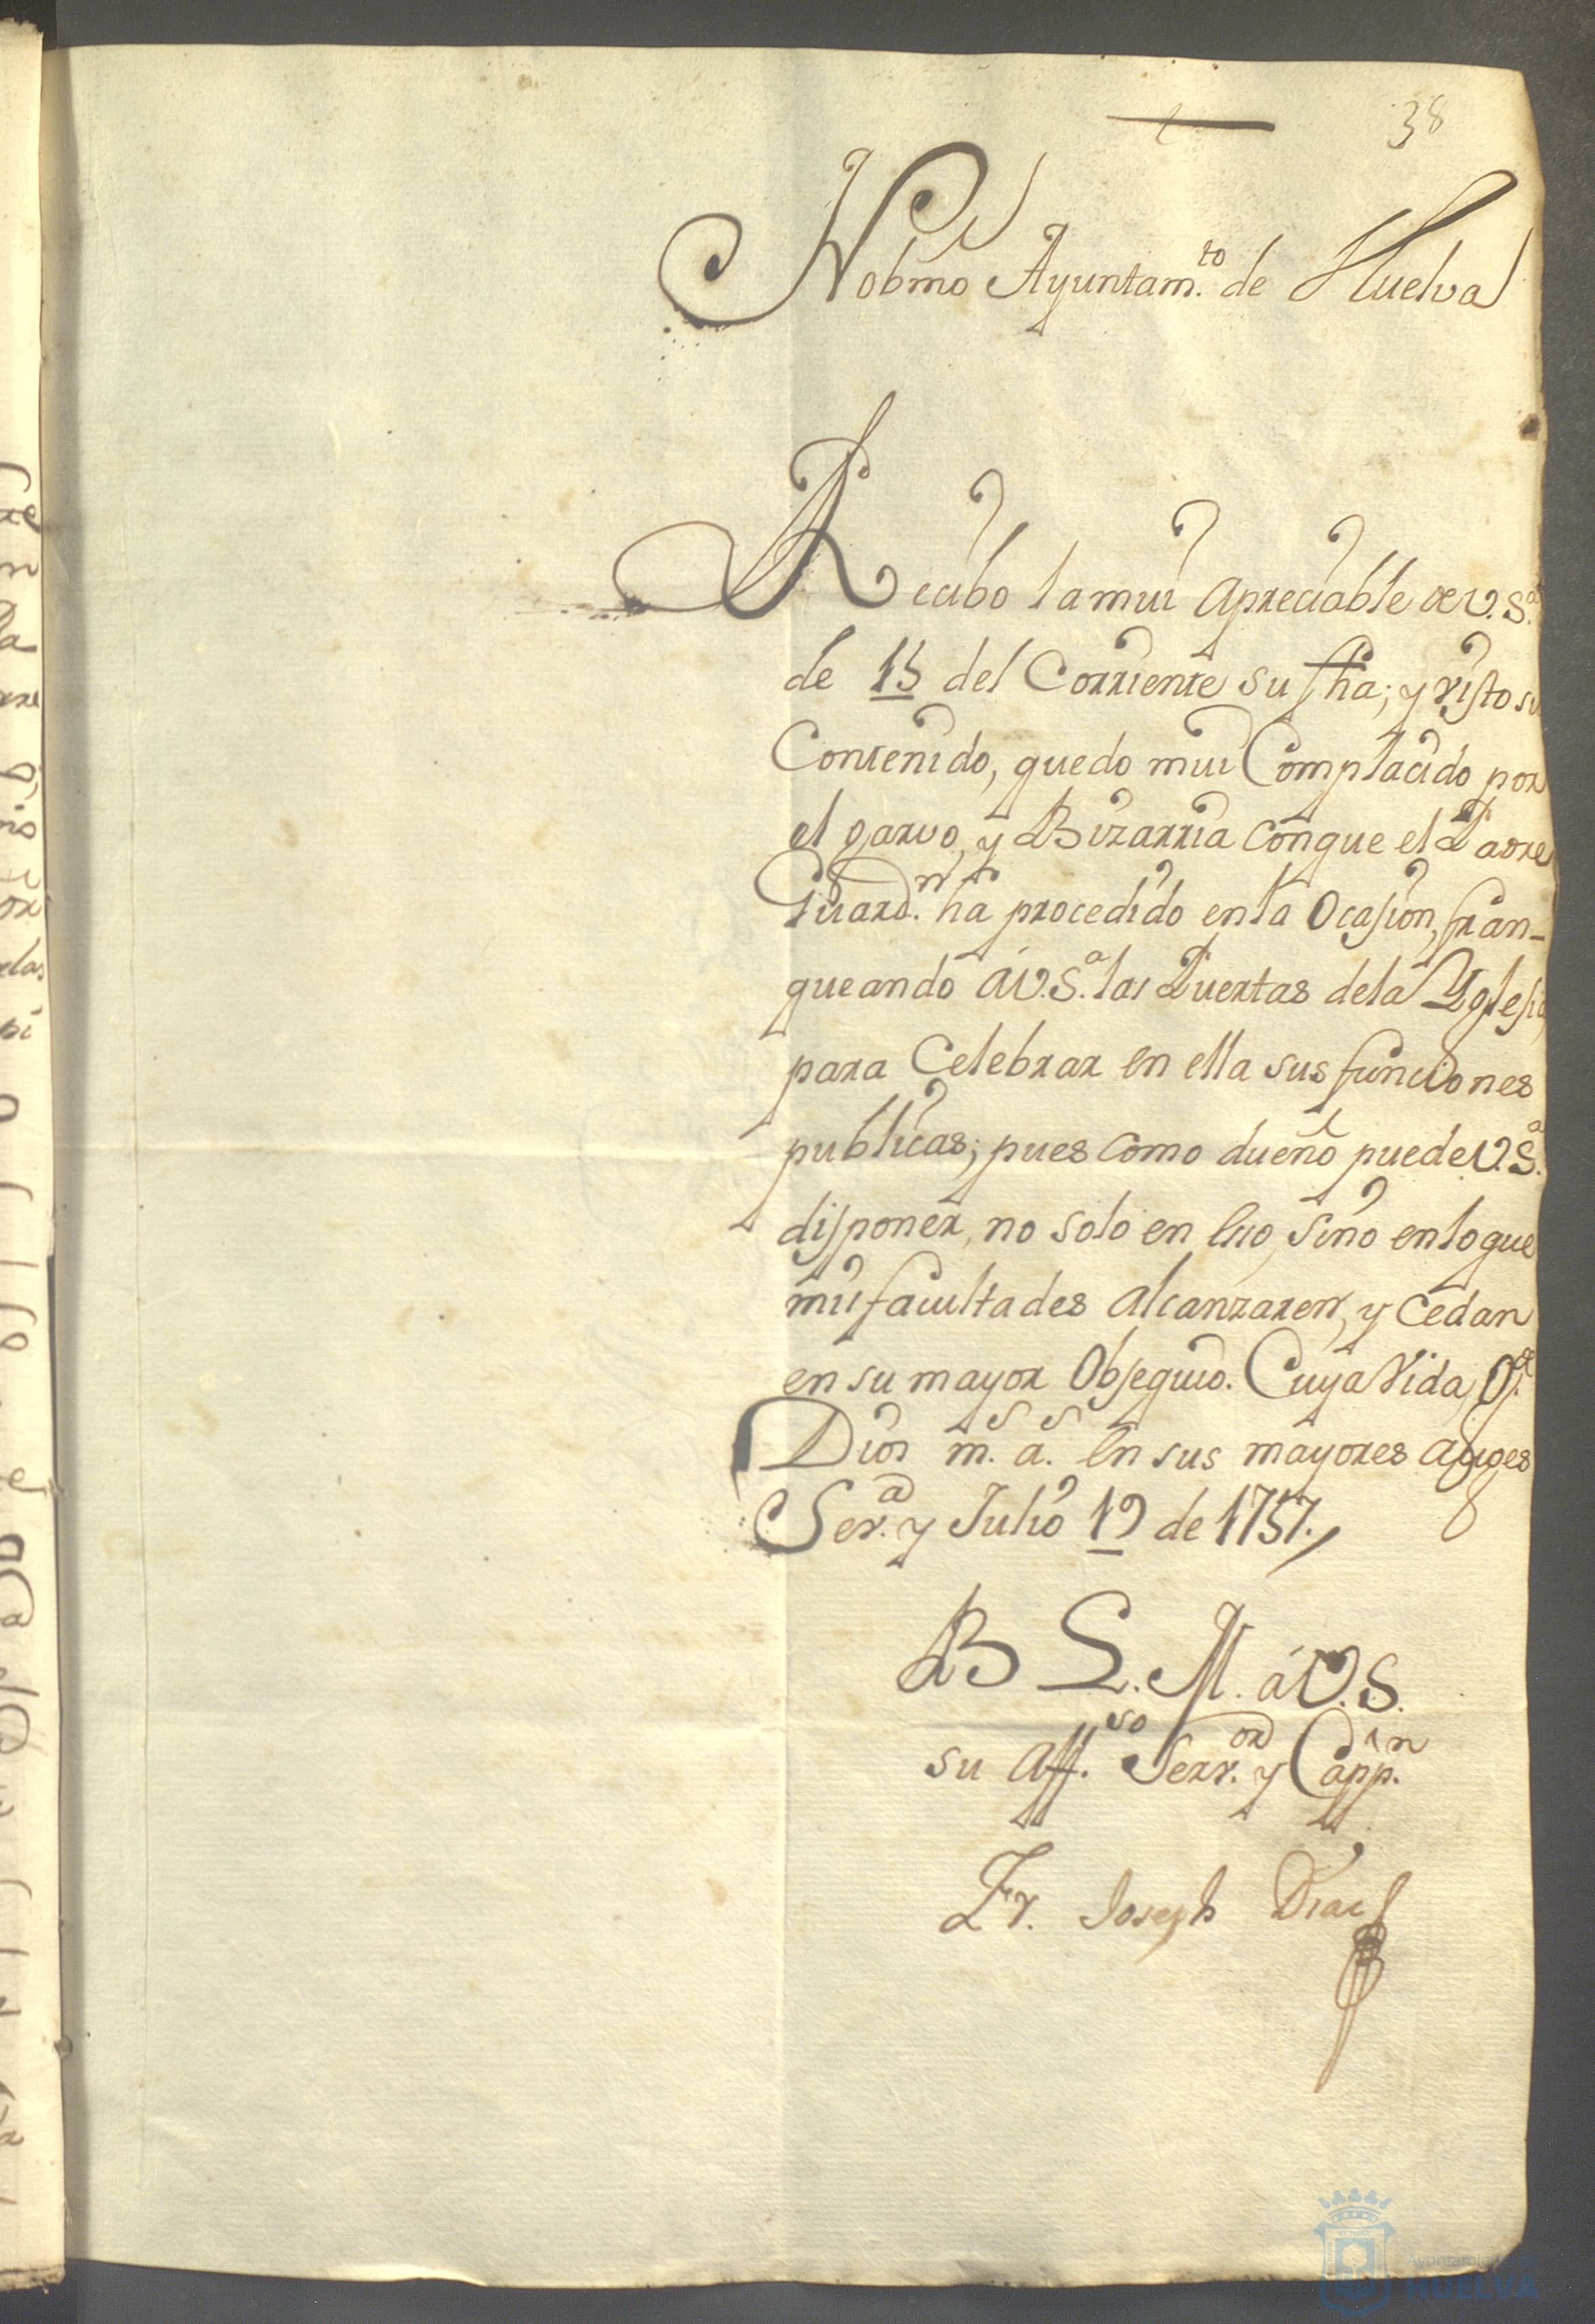 38
Nobmo Ayuntam.to de Huelva
Recibo la mui apreciable de V.S.a
de 15 del Corriente su fha; y visto su
Contenido, quedo mui Complacido por
el garvo, y Bizarria con que el Padre
Guard.n ha procedido en la Ocasion, fran-
queando á V.S.a las Puertas de la Yglesia,
para Celebrar en ella sus funciones
publicas; pues como dueño puede V.S.a
disponer, no solo en eso, sino en lo que
mis facultades alcanzaren, y cedan
en su mayor Obsequio. Cuya Vida, g.e
Dios m.s a.s en sus mayores auges
Sev.a y Julio 19 de 1757.
B L. M. á V.S.
su Aff.so Serv.or y Capp.n
Fr. Joseph Diaz
Ayuntamiento
HUELVA